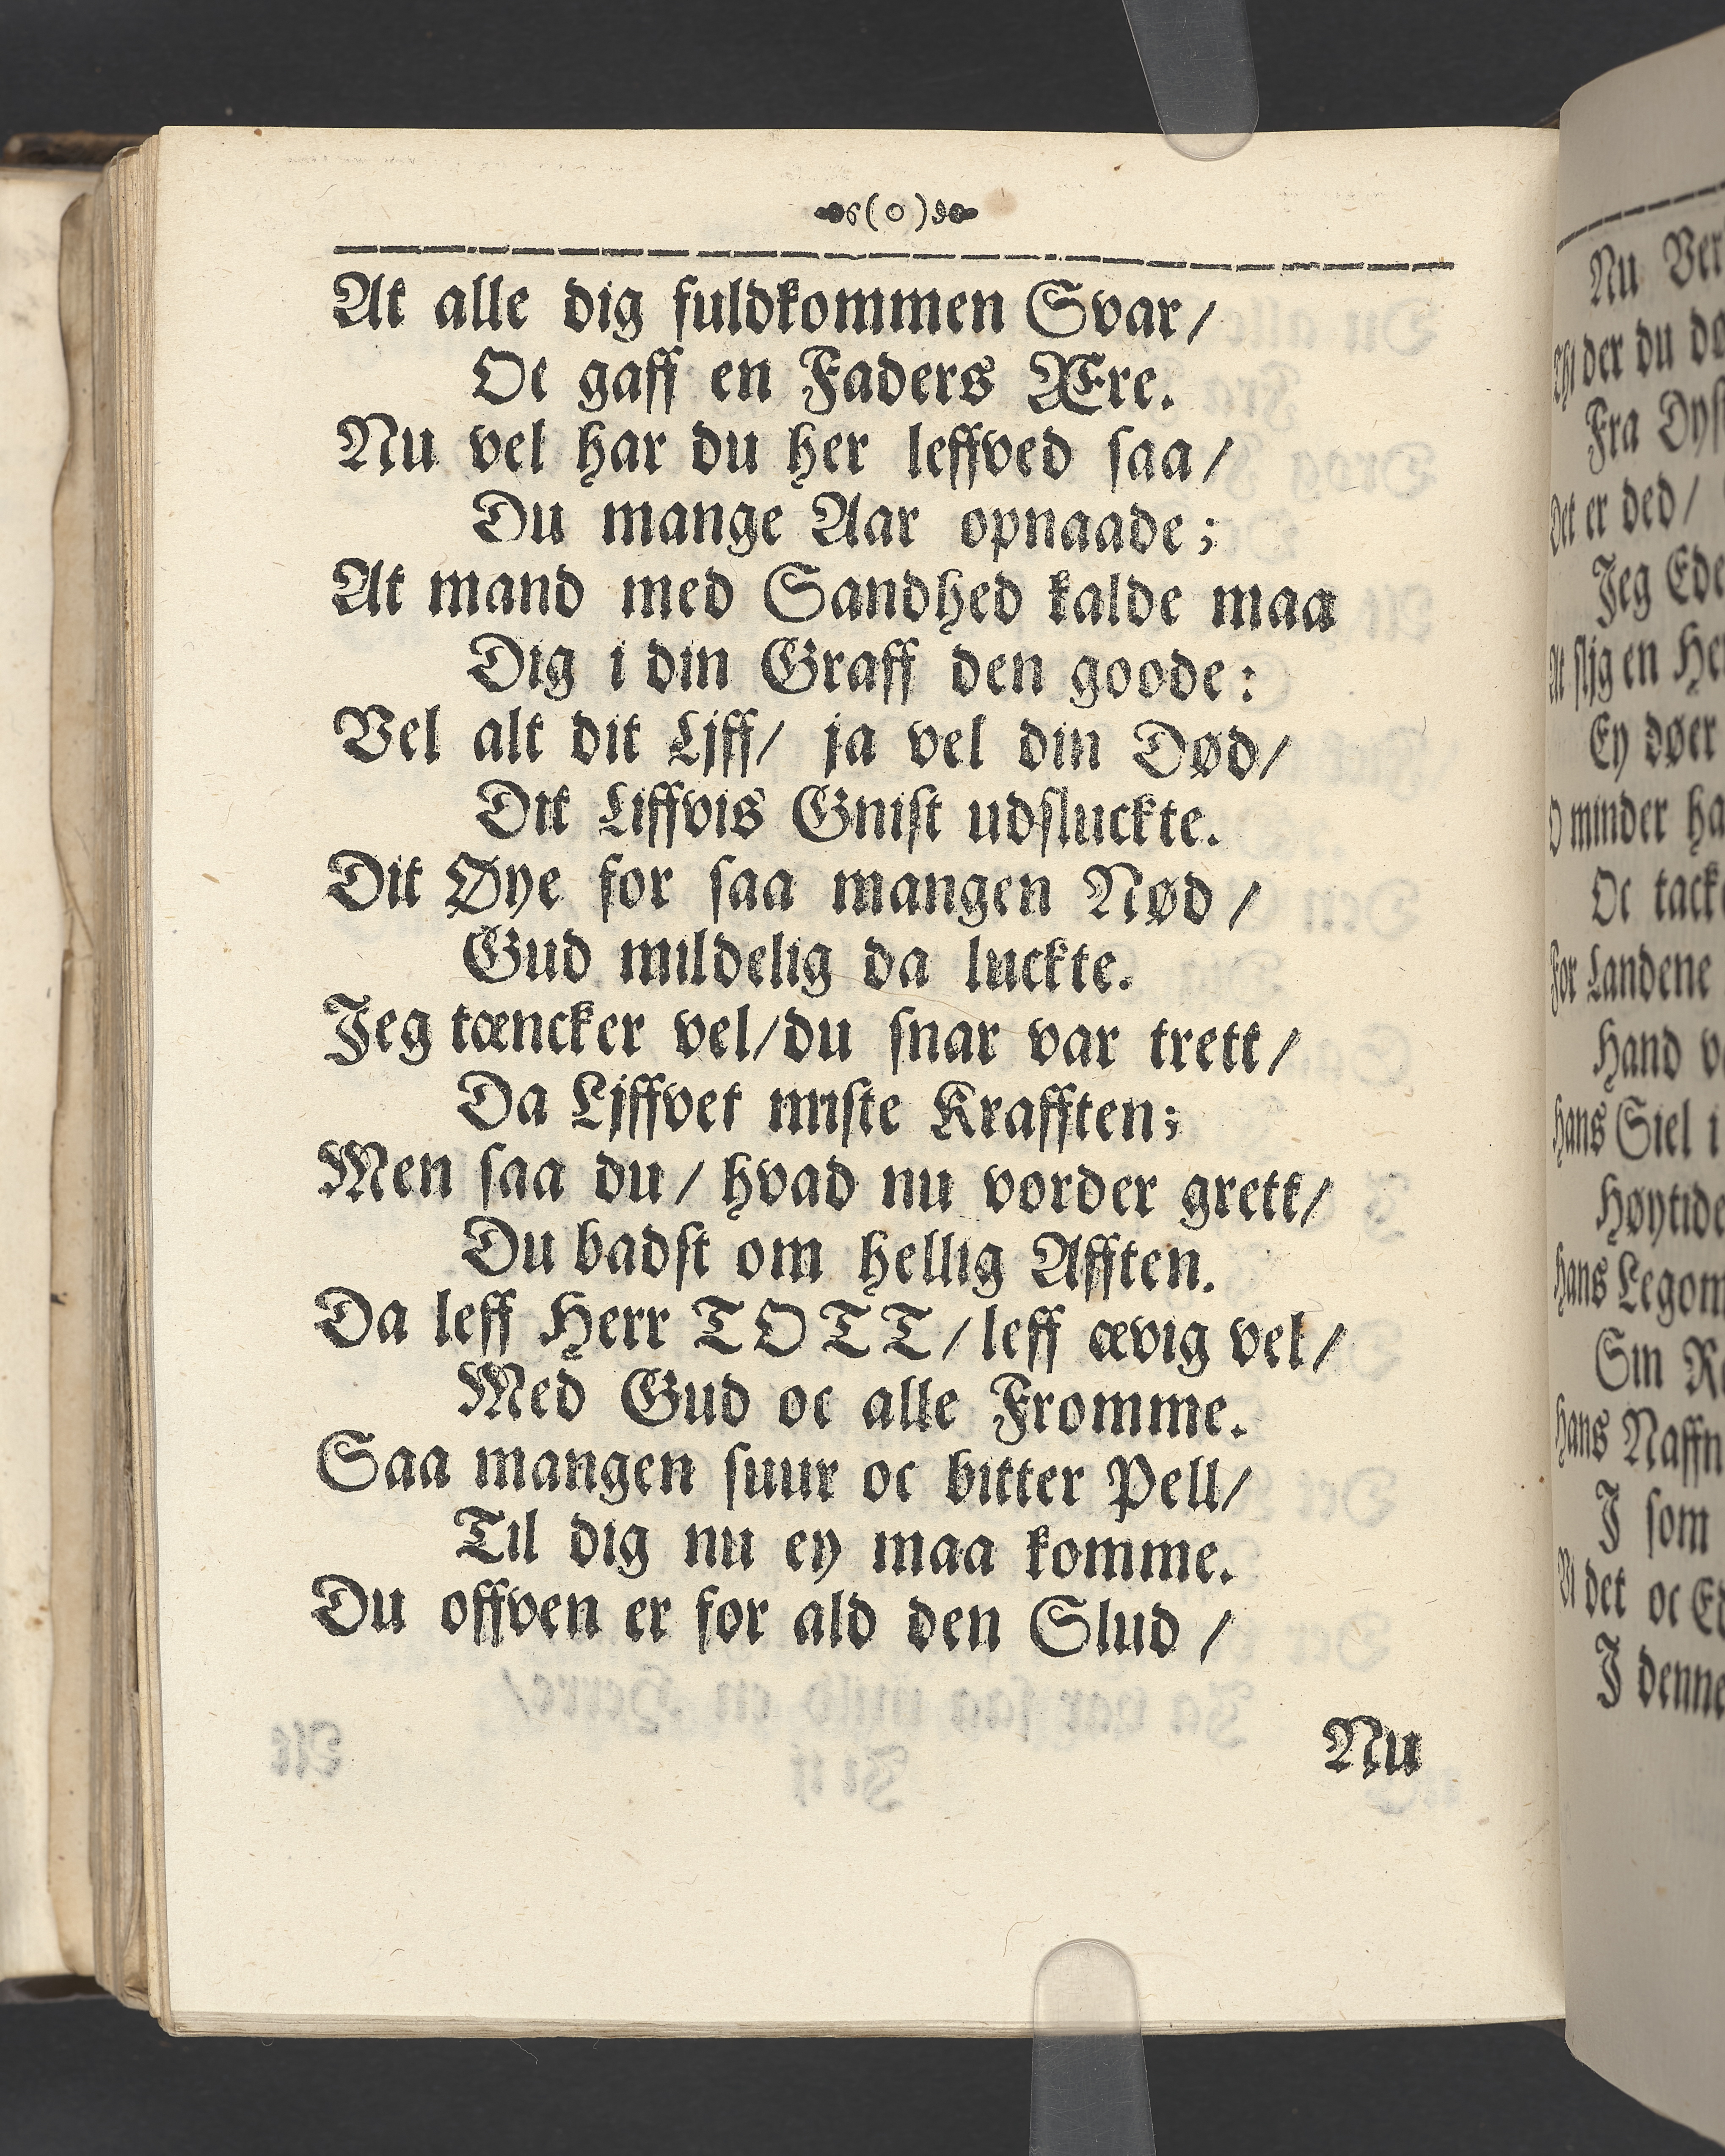 (o)
At alle dig fuldkommen Svar/
Oc gaff en Faders Ære.
Nu vel har du her leffved saa/
Du mange Aar opnaade;
At mand med Sandhed kalde maa
Dig i din Graff den goode:
Vel alt dit Ljff/ ja vel din Død/
Dit Liffvis Gnist udsluckte.
Dit Øye for saa mangen Nød/
Gud mildelig da luckte.
Jeg tæncker vel/du snar var trett/
Da Ljffvet miste Krafften;
Men saa du/ hvad nu vorder grett/
Du badst om hellig Afften.
Da leff Herr TOTT/leff ævig vel/
Med Gud oc alle Fromme.
Saa mangen suur oc bitter Pell/
Til dig nu ey maa komme.
Du offven er for ald den Slud/
Nu
Nu
der du
Fra
Det er ded/
Jeg
At slig en
Ey døer
O minder
Oc
For Landene
Hand
Hans Siel
Hans
Sin
Hans
I som
det oc
I